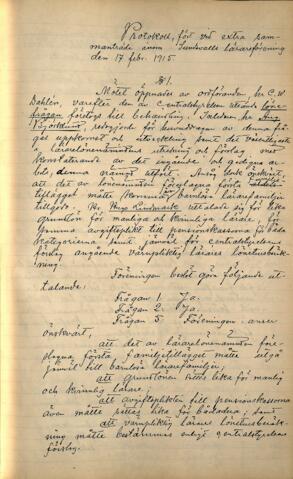 Protokoll, fört vid extra sam-
manträde inom Sundsvalls lärareförening
den 17 febr. 1915
§ 1.
Mötet öppnades av ordföranden hr C. W.
Dahlén, varefter den av Centralstyrelsen utsända löne-
frågan företogs till behandling. Talaren, hr Aug.
redogjorde för huvuddragen av denna frå-
gas uppkomst och utveckling samt det väsentligaste
i lärarelönenämndens utredning och förslag med
konstaterande av det ingående och gedigna ar-
bete, denna nämnd utfört. Ansåg dock önskvärt,
att det av lönenämnden föreslagna första
tillägget måtte komma barnlösa lärarefamiljer
tillgodo. Hr Aug. Lindmark uttalade sig för lika
grundlön för manliga och kvinnliga lärare, för
samma avgiftsplikt till pensionskassorna för båda
kategorierna samt jämväl för centralstyrelsens
förslag angående värnpliktig lärares lönetursberäk-
ning.
Föreningen beslöt göra följande ut-
talande:
Frågan 1 Ja.
Frågan 2 Ja.
Frågan 3 Föreningen anser
önskvärt,
att det av lärarelönenämnden före-
slagna första familjetillägget måtte utgå
jämväl till barnlösa lärarefamiljer,
att grundlönen sättes lika för manlig
och kvinnlig lärare,
att avgiftsplikten till pensionskassorna
även måtte sättas lika för bådadera; samt
att värnpliktig lärares lönetursberäk-
ning måtte bestämmas enligt centralstyrelsens
förslag.